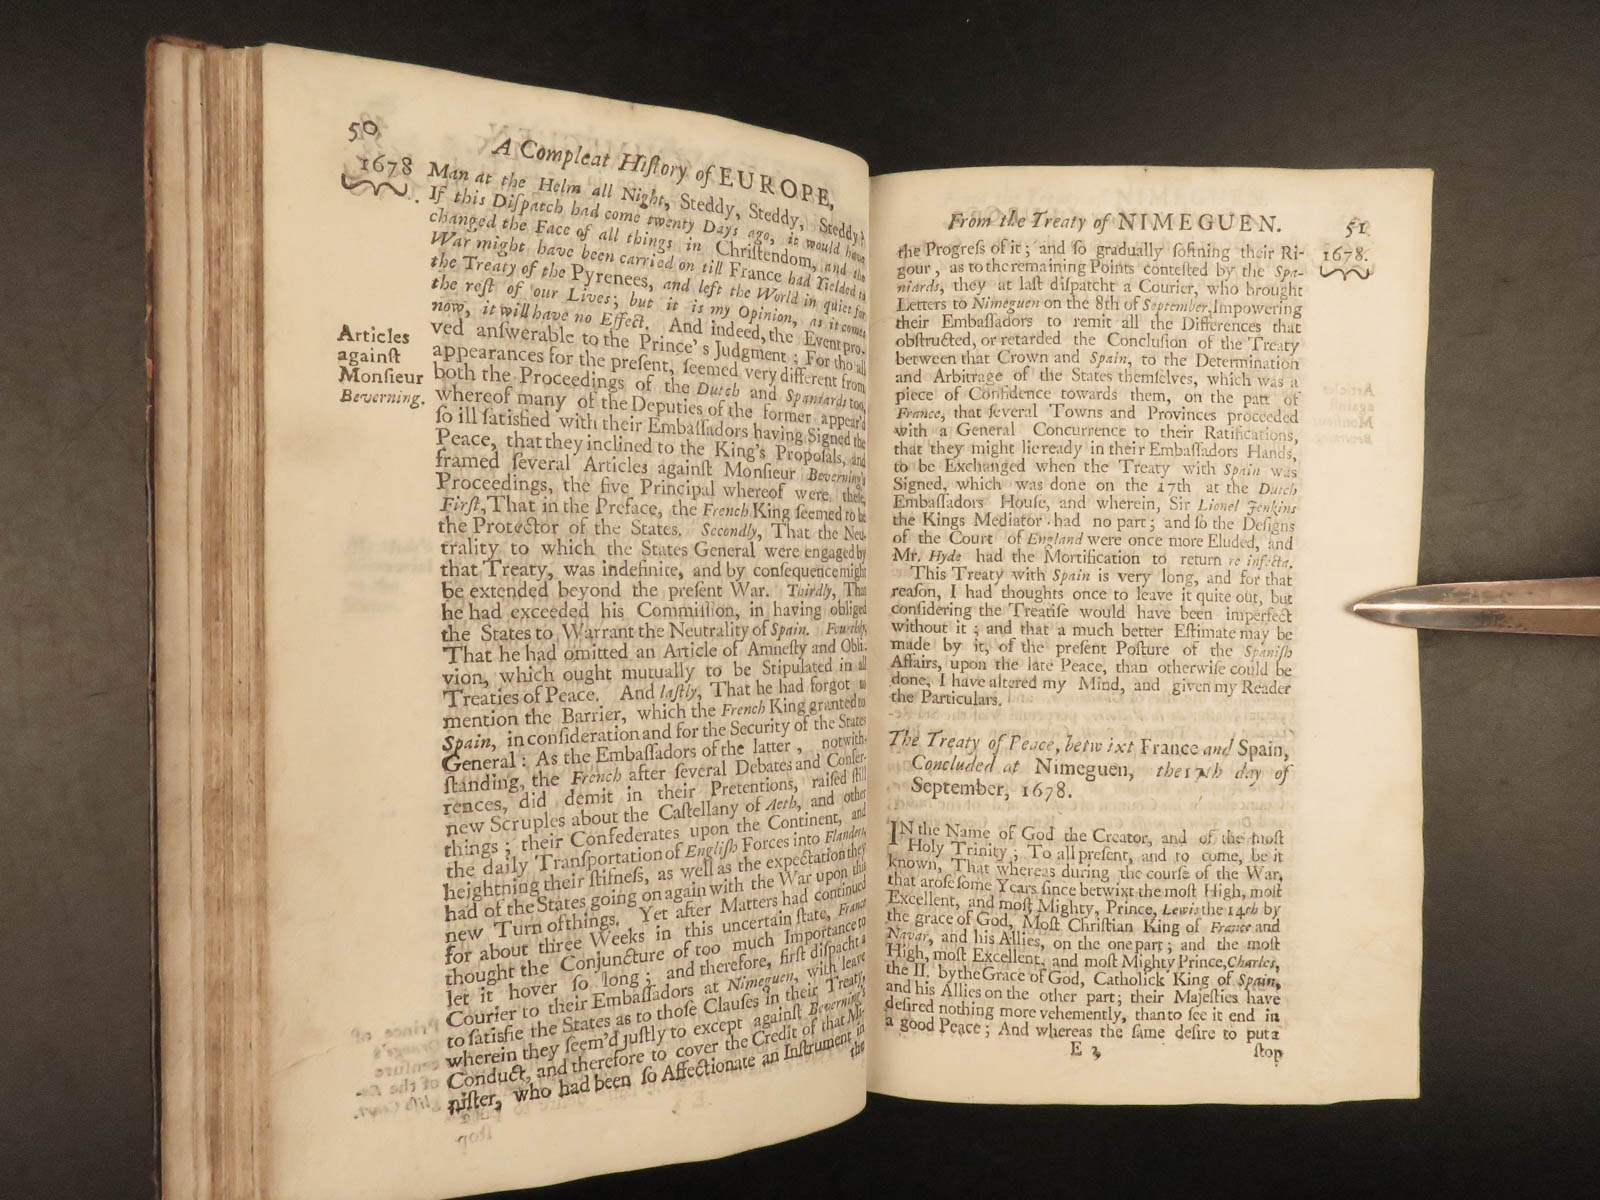 50
A Compleat Hiſtory of EUROPE,
1678
Man at the Helm all Night, Steddy, Steddy, Steddy:
If this Diſpatch had come twenty Days ago, it would have
changed the Face of all things in Chriſtendom, and the
War might have been carried on till France had Yielded to
the Treaty of the Pyrenees, and left the World in quiet for
the reſt of our Lives; but it is my Opinion, as it comes
now, it will have no Effect. And indeed, the Event pro-
ved anſwerable to the Prince's Judgment: For tho all
appearances for the preſent, ſeemed very different from
both the Proceedings of the Dutch and Spaniards too,
whereof many of the Deputies of the former appear'd
ſo ill ſatisfied with their Embaſſadors having Signed the
Peace, that they inclined to the King's Propoſals, and
framed ſeveral Articles againſt Monſieur Beverning's
Proceedings, the five Principal whereof were theſe,
Firſt, That in the Preface, the French King ſeemed to be
the Protector of the States. Secondly, That the Neu-
trality to which the States General were engaged by
that Treaty, was indefinite, and by conſequence might
be extended beyond the preſent War. Thirdly, That
he had exceeded his Commiſſion, in having obliged
the States to Warrant the Neutrality of Spain. Fourthly,
That he had omitted an Article of Amneſty and Obli-
vion, which ought mutually to be Stipulated in all
Treaties of Peace. And laſtly, That he had forgot to
mention the Barrier, which the French King granted to
Spain, in conſideration and for the Security of the States
General: As the Embaſſadors of the latter, notwith-
ſtanding, the French after ſeveral Debates and Confer-
rences, did demit in their Pretentions, raiſed ſtill
new Scruples about the Caſtellany of Aeth, and other
things; their Confederates upon the Continent, and
the daily Tranſportation of Engliſh Forces into Flanders,
heightning their ſtifneſs, as well as the expectation they
had of the States going on again with the War upon this
new Turn of things. Yet after Matters had continued
for about three Weeks in this uncertain ſtate, France
thought the Conjuncture of too much Importance to
let it hover ſo long; and therefore, firſt diſpatcht a
Courier to their Embaſſadors at Nimeguen, with leave
to ſatisfie the States as to thoſe Clauſes in their Treaty,
wherein they ſeem'd juſtly to except againſt Beverning's
Conduct, and therefore to cover the Credit of that Mi-
niſter, who had been ſo Affectionate an Inſtrument in
the
Articles
againſt
Monſieur
Beverning.
From the Treaty of NIMEGUEN.
51
1678.
the Progreſs of it; and ſo gradually ſoftning their Ri-
gour, as to the remaining Points conteſted by the Spa-
niards, they at laſt diſpatcht a Courier, who brought
Letters to Nimeguen on the 8th of September, Impowering
their Embaſſadors to remit all the Differences that
obſtructed, or retarded the Concluſion of the Treaty
between that Crown and Spain, to the Determination
and Arbitrage of the States themſelves, which was a
piece of Confidence towards them, on the part of
France, that ſeveral Towns and Provinces proceeded
with a General Concurrence to their Ratifications,
that they might lie ready in their Embaſſadors Hands,
to be Exchanged when the Treaty with Spain was
Signed, which was done on the 17th at the Dutch
Embaſſadors Houſe, and wherein, Sir Lionel Jenkins
the Kings Mediator had no part; and ſo the Deſigns
of the Court of England were once more Eluded, and
Mr. Hyde had the Mortification to return re infecta.
This Treaty with Spain is very long, and for that
reaſon, I had thoughts once to leave it quite out, but
conſidering the Treatiſe would have been imperfect
without it; and that a much better Eſtimate may be
made by it, of the preſent Poſture of the Spaniſh
Affairs, upon the late Peace, than otherwiſe could be
done, I have altered my Mind, and given my Reader
the Particulars.
The Treaty of Peace, betwixt France and Spain,
Concluded at Nimeguen, the 17th day of
September, 1678.
IN the Name of God the Creator, and of the moſt
Holy Trinity; To all preſent, and to come, be it
known, That whereas during the courſe of the War,
that aroſe ſome Years ſince betwixt the moſt High, moſt
Excellent, and moſt Mighty, Prince, Lewis the 14th by
the grace of God, Moſt Chriſtian King of France and
Navar, and his Allies, on the one part; and the moſt
High, moſt Excellent, and moſt Mighty Prince, Charles,
the II. by the Grace of God, Catholick King of Spain,
and his Allies on the other part; their Majeſties have
deſired nothing more vehemently, than to ſee it end in
a good Peace; And whereas the ſame deſire to put a
E 2
ſtop